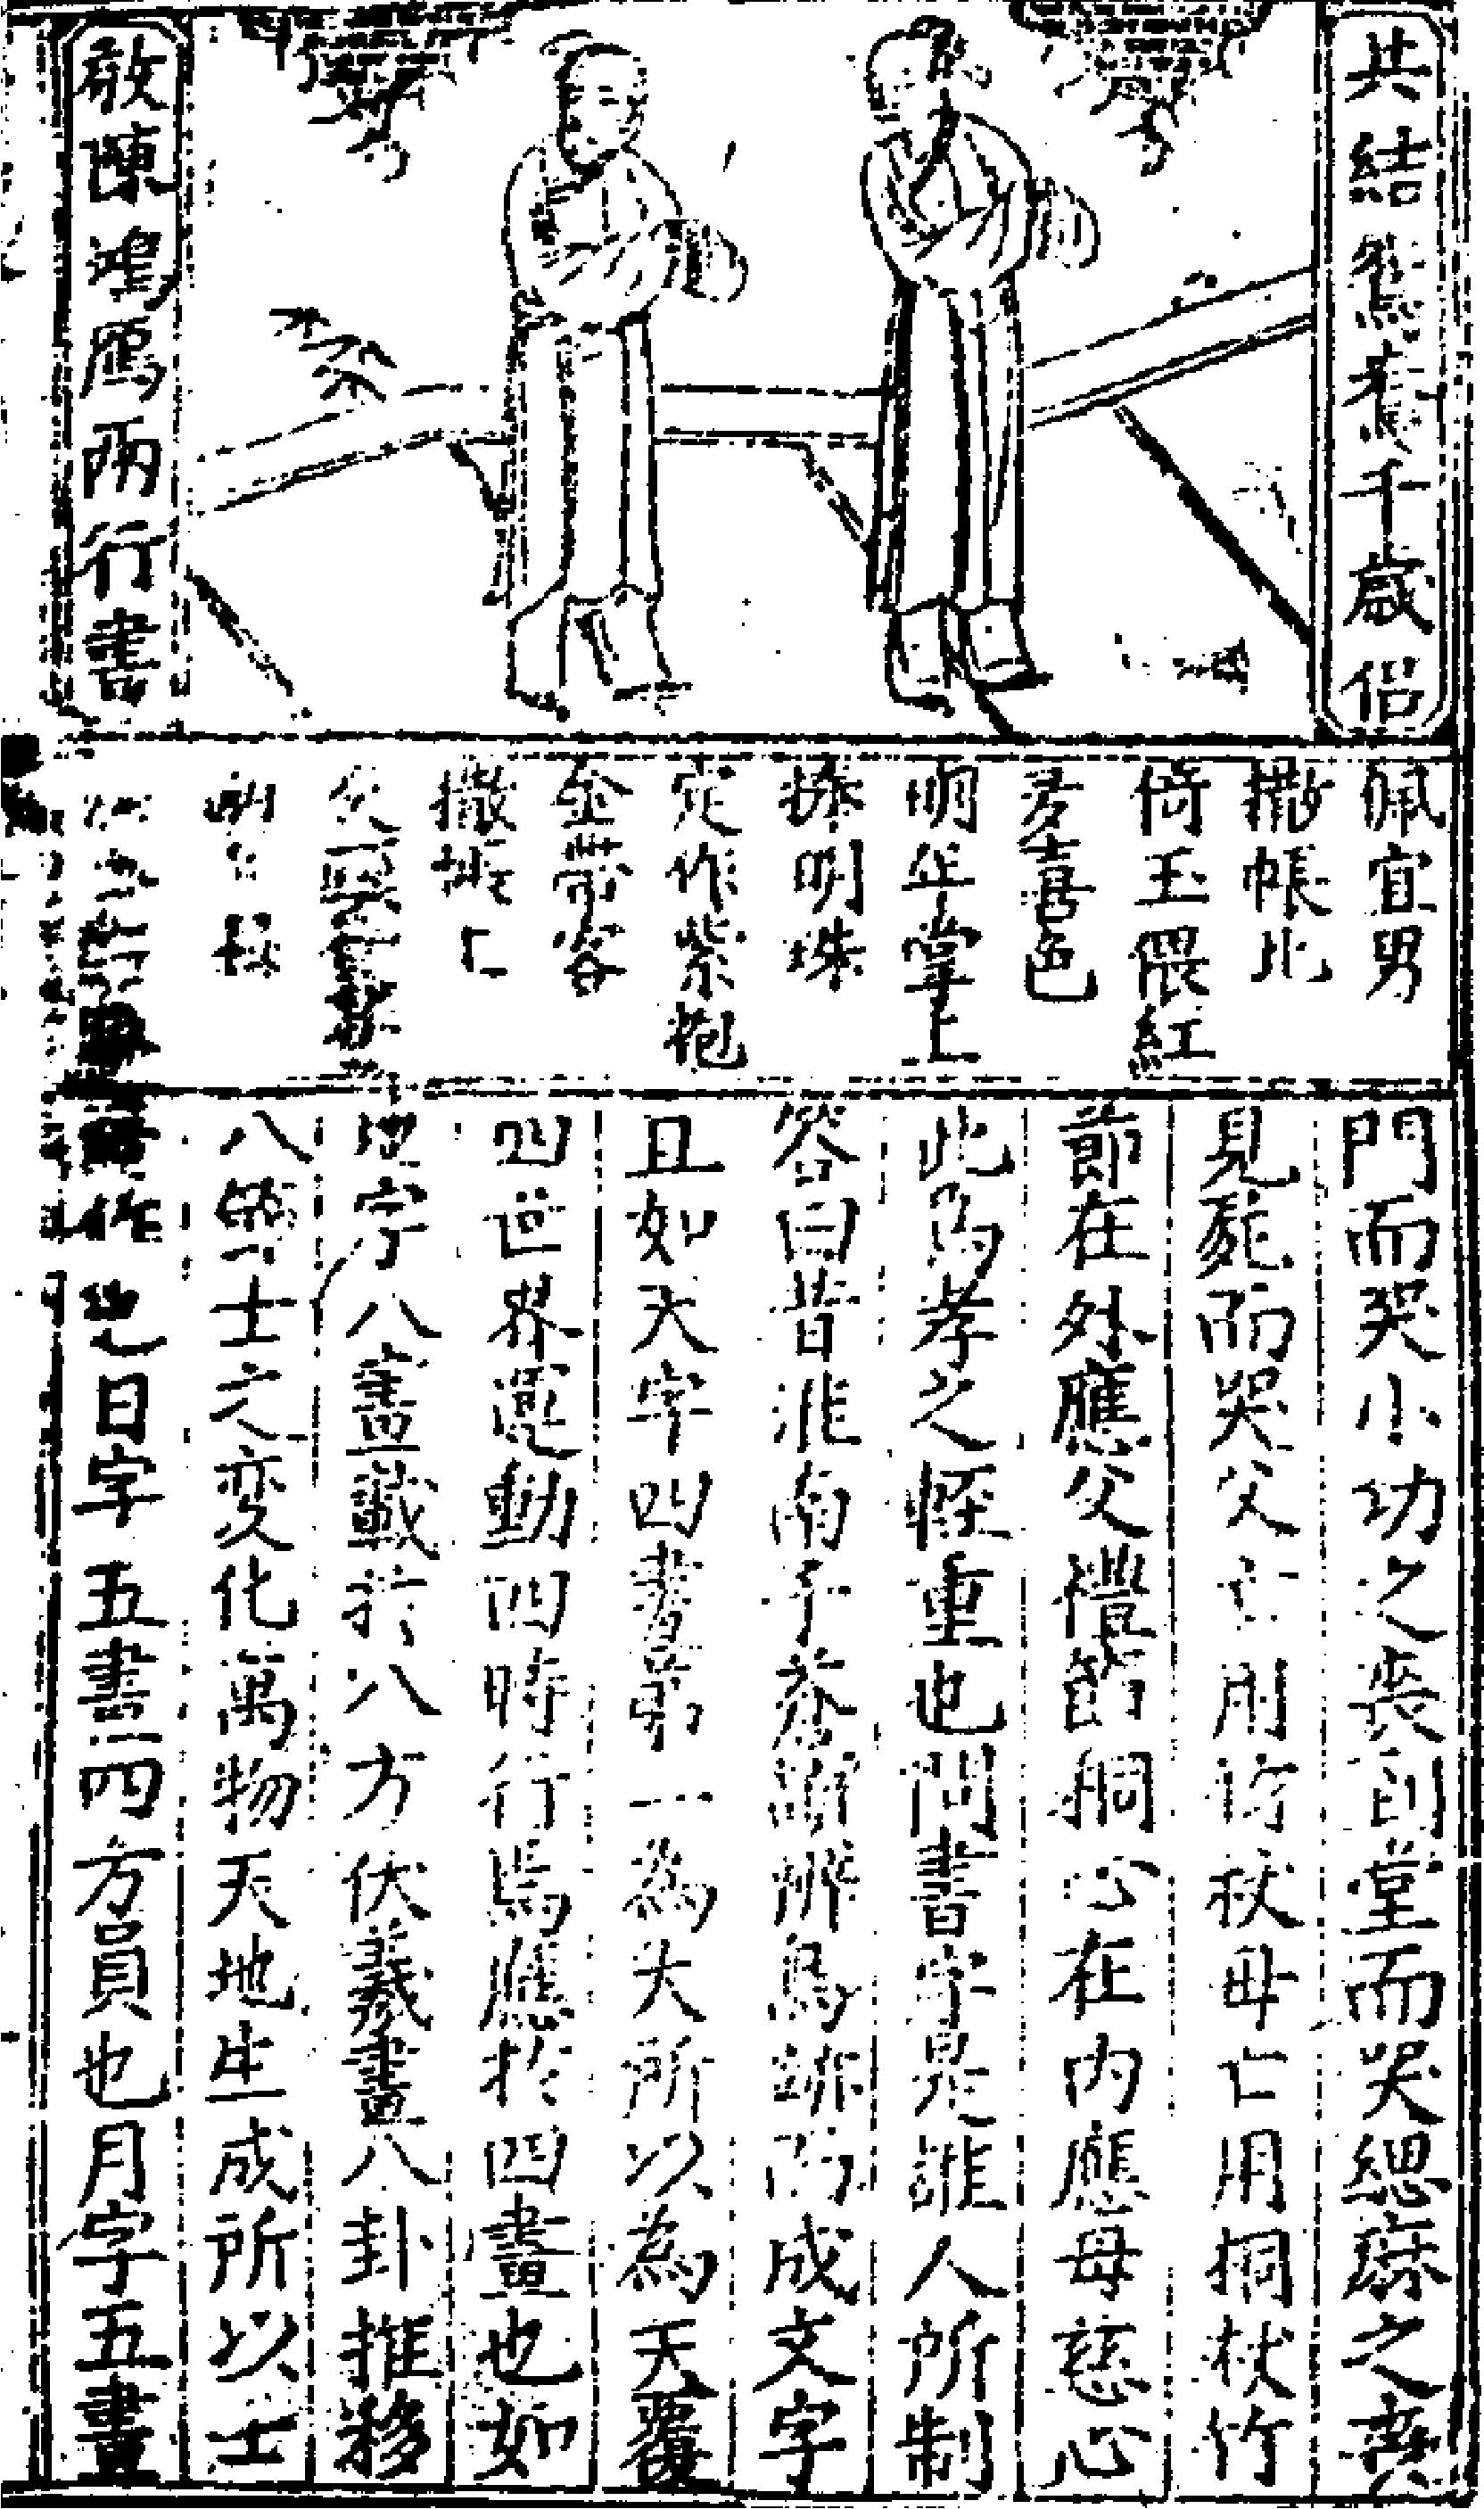 共結鴛鴦千歲侶
敢陳鴻鴈兩行書
佩宜男
撒帳北
倚玉偎紅
多喜色
明年掌上
捧明珠
定作紫袍
金帶客
撒帳
門而哭小功之喪到堂而哭緦蔴之喪
見屍而哭父亡用竹杖母亡用桐杖竹
節在外應父禮節桐心在内應母慈心
此為孝之怪重也問書字是誰人所制
答曰昔淮南子蒼頡辨鳥跡而成文字
且如天字四畫第一為大所以為天覆
四世界運動四時行焉應於四畫也如
地字八畫載於八方伏羲畫八卦推移
八節士之变化萬物天地生成所以士
作也日字五畫四方員也月字五畫